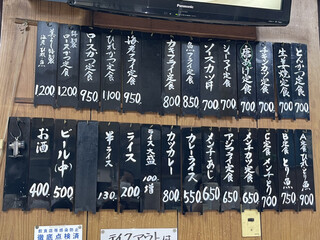 Panasonic
とんかつ定食 700
生姜焼定食 700
チキンカツ定食 700
唐あげ定食 700
シューマイ定食 700
ソースカツ丼 700
魚フライ定食 850
カキフライ定食 800
海老フライ定食 950
ひれかつ定食 1100
ロースかつ定食 950
特製
ロースかつ定食 1200
1200
A定食
900
B定食
とり魚 750
C定食
メンチとり 700
メンチカツ定食 650
アジフライ定食 650
メンチあじ 650
カレーライス 550
カツカレー 800
ライス大盛 100増
ライス 200
半ライス 130
ビール(中) 500
お酒 400
徹底点検済
テイクアウトは